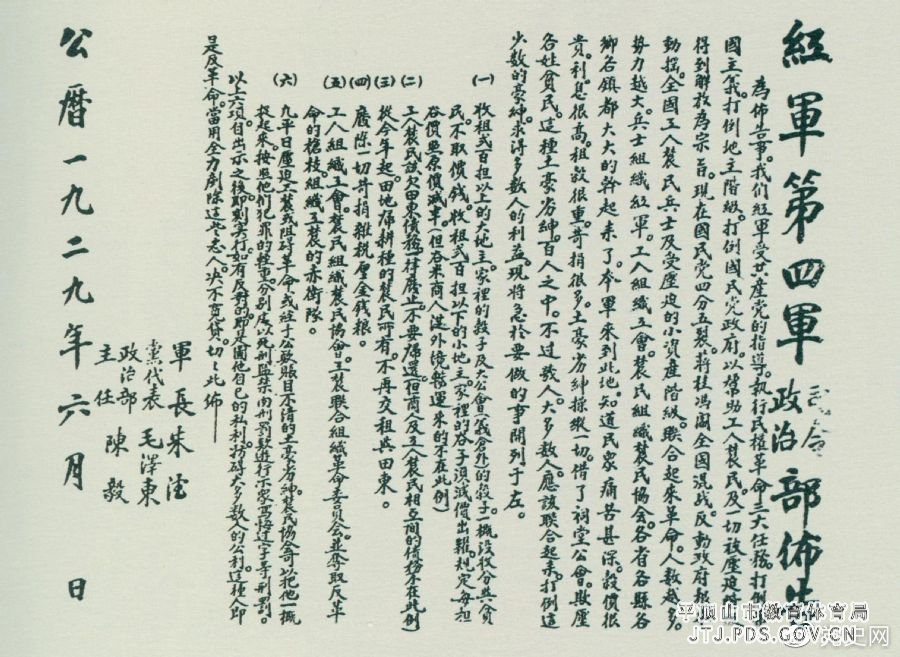 紅軍第四軍司令政治部佈告
為佈告事。我们紅軍受共產党的指導。執行民權革命三大任務。打倒帝
國主義。打倒地主階級。打倒國民党政府。以幫助工人農民。及一切被壓迫階級
得到解放為宗旨。現在國民党四分五裂。蔣桂馮閻全國混战。反動政府根本
動搖。全國工人農民兵士及受壓迫的小資產階級。联合起來革命。人数越多。
勢力越大。兵士組織紅軍。工人組織工會。農民組織農民協會。各省各縣各
鄉各鎮都大大的幹起来了。本軍來到此地。知道民众痛苦甚深。穀價很
貴。利息很高。租穀很重。苛捐很多。土豪劣紳操縱一切。借了祠堂公會。欺壓
各姓貧民。這種土豪劣紳。百人之中。不过数人。大多数人應該联合起来。打倒這
少数的豪紳。求得多数人的利益。現將急於要做的事開列于左。
(一) 收租弍百担以上的大地主。家裡的穀子及大公會(義倉外)的穀子。一概沒收分與貧
民。不取價錢。收租弍百担以下的小地主。家裡的谷子須減價出糶。規定每担
谷價照原價減半。(但谷米商人從外境辦運来的不在此例)
(二) 工人農民該欠田東債務。一律廢止。不要歸還。(但商人及工人農民相互間的債務不在此例)
(三) 從今年起。田地歸耕種的農民所有。不再交租與田東。
(四) 廢除一切苛捐雜税厘金錢粮。
(五) 工人組織工會。農民組織農民協會。工農联合組織革命委員會。並奪取反革
命的槍枝組織工農的赤衛隊。
(六) 凡平日壓迫工農或阻碍革命。或經手公款賬目不清的土豪劣紳。農民協會可以把他一概
捉起来。按照他们犯罪的輕重。分別处以死刑監禁肉刑罰款遊行示众写悔过字等刑罰。
以上六項。自出示之後即刻实行。如有反對的即是圖他自己的私利。妨碍大多数人的公利。這種人即
是反革命。當用全力剷除這些恶人決不寬貸。切切此佈——
軍長 朱德
黨代表 毛澤東
政治部主任 陳毅
公曆一九二九年六月 日
平顶山市教育体育局
JTJ.PDS.GOV.CN
党史网